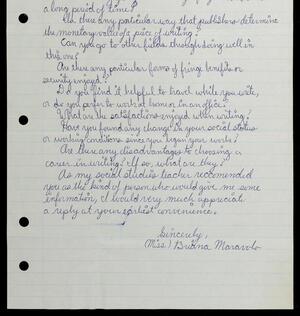 a long period of time?
Is there any particular way that publishers determine
the monetary value of a piece of writing?
Can you go to other fields through doing well in
this one?
Are there any particular forms of fringe benefits or
security enjoyed?
Do you find it helpful to travel while you write,
or do you prefer to work at home, or in an office?
What are the satisfactions enjoyed when writing?
Have you found any change in your social status
or working conditions since you began your work?
Are there any disadvantages to choosing a
career in writing? If so, what are they?
As my social studies teacher recomended
you as the kind of person who would give me some
information, I would very much appreciate
a reply at your earliest convenience.
Sincerely,
(Miss)